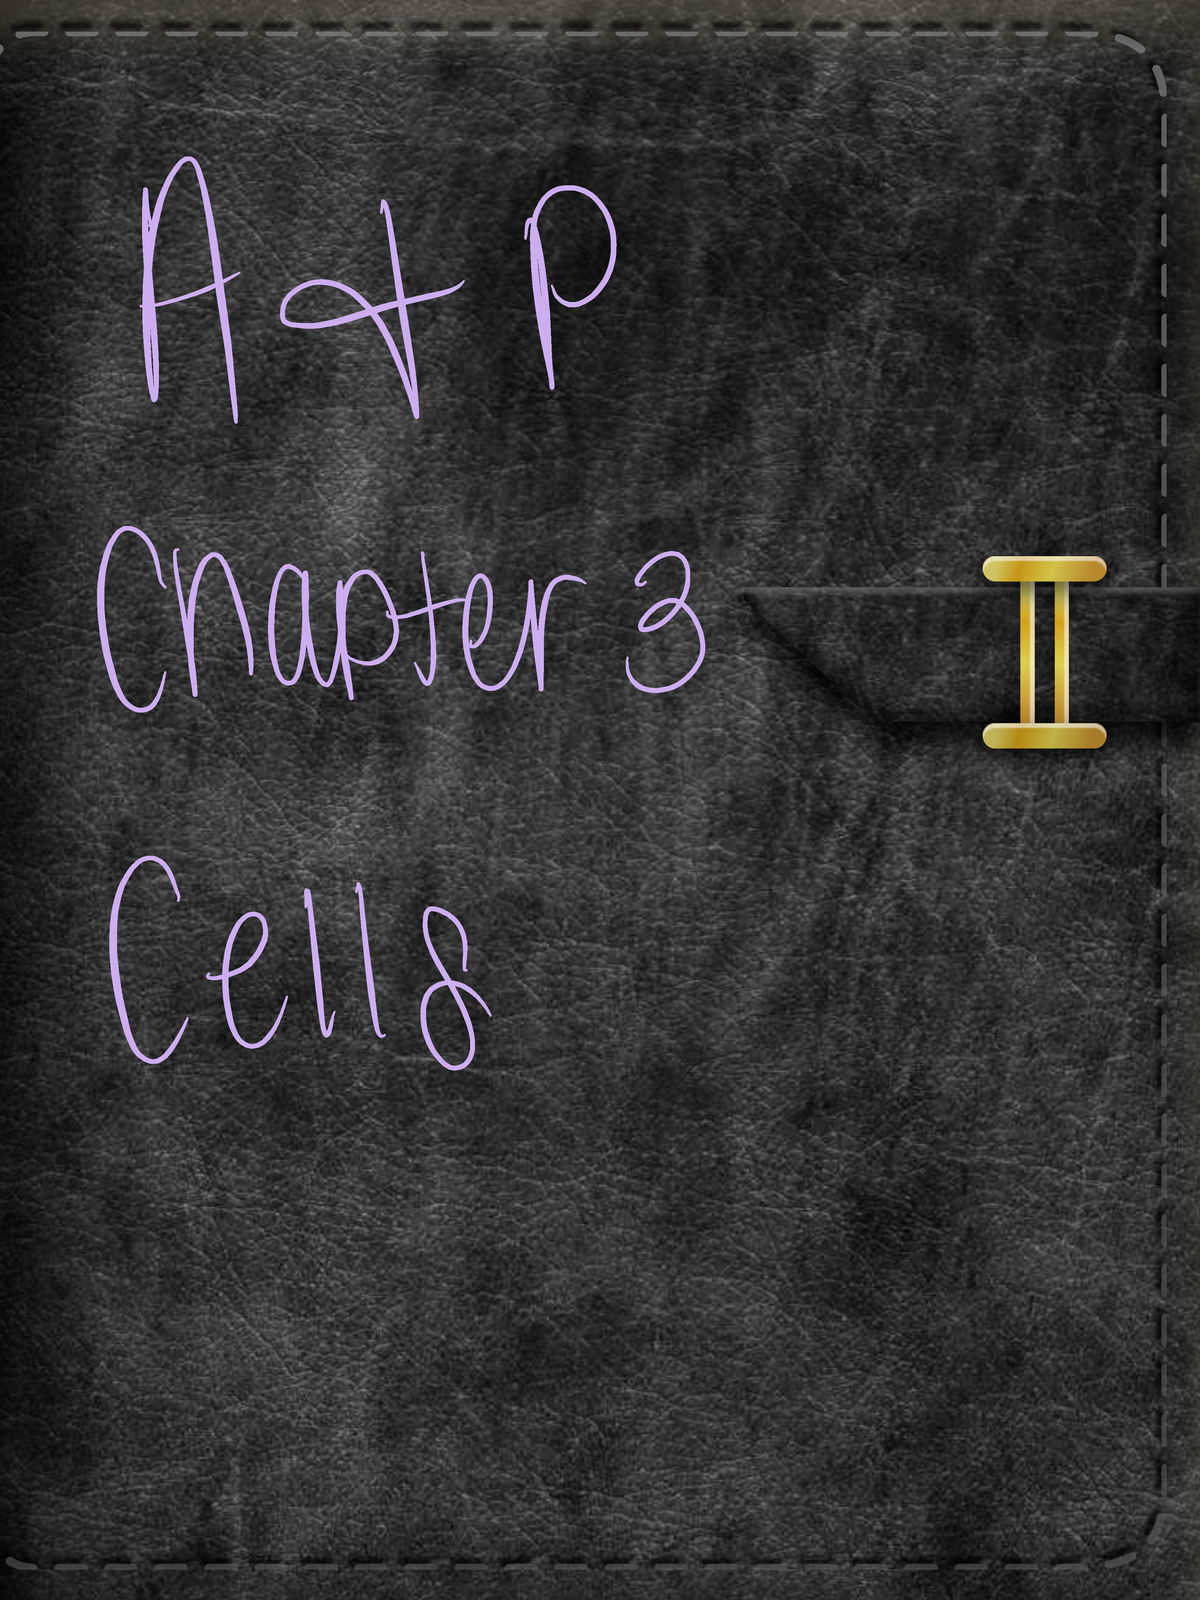 A & P
Chapter 3
Cells